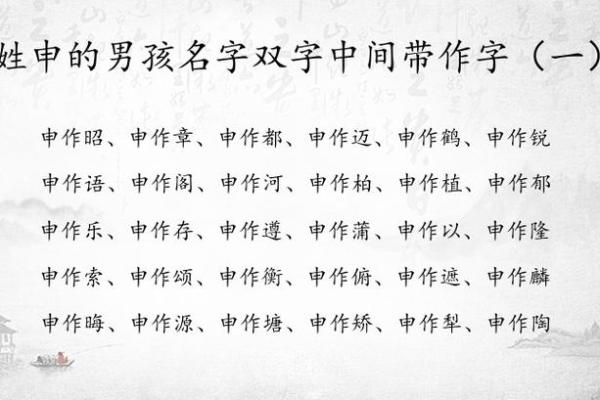 姓申的男孩名字双字中间带作字（一）
申作昭、申作章、申作都、申作迈、申作鹤、申作锐
申作语、申作阁、申作河、申作柏、申作植、申作郁
申作乐、申作存、申作遵、申作蒲、申作以、申作隆
申作索、申作颂、申作衡、申作俯、申作遮、申作麟
申作晦、申作源、申作塘、申作矫、申作犁、申作陶